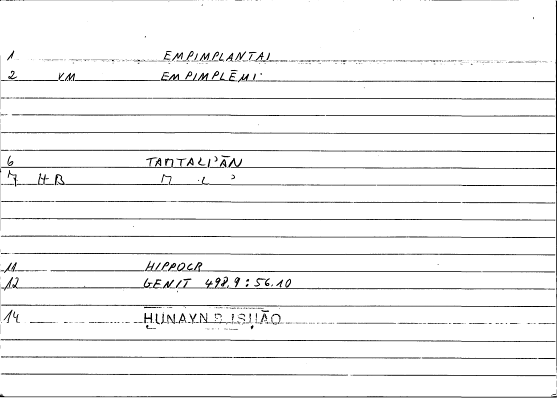 1 EMPIMPLANTAI
2 VM EMPIMPLĒMI
6 TAMTALI'ĀN
7 HB M L '
11 HIPPOCR
12 GENIT 498.9:56.10
14 ḤUNAYN B ISḤĀQ